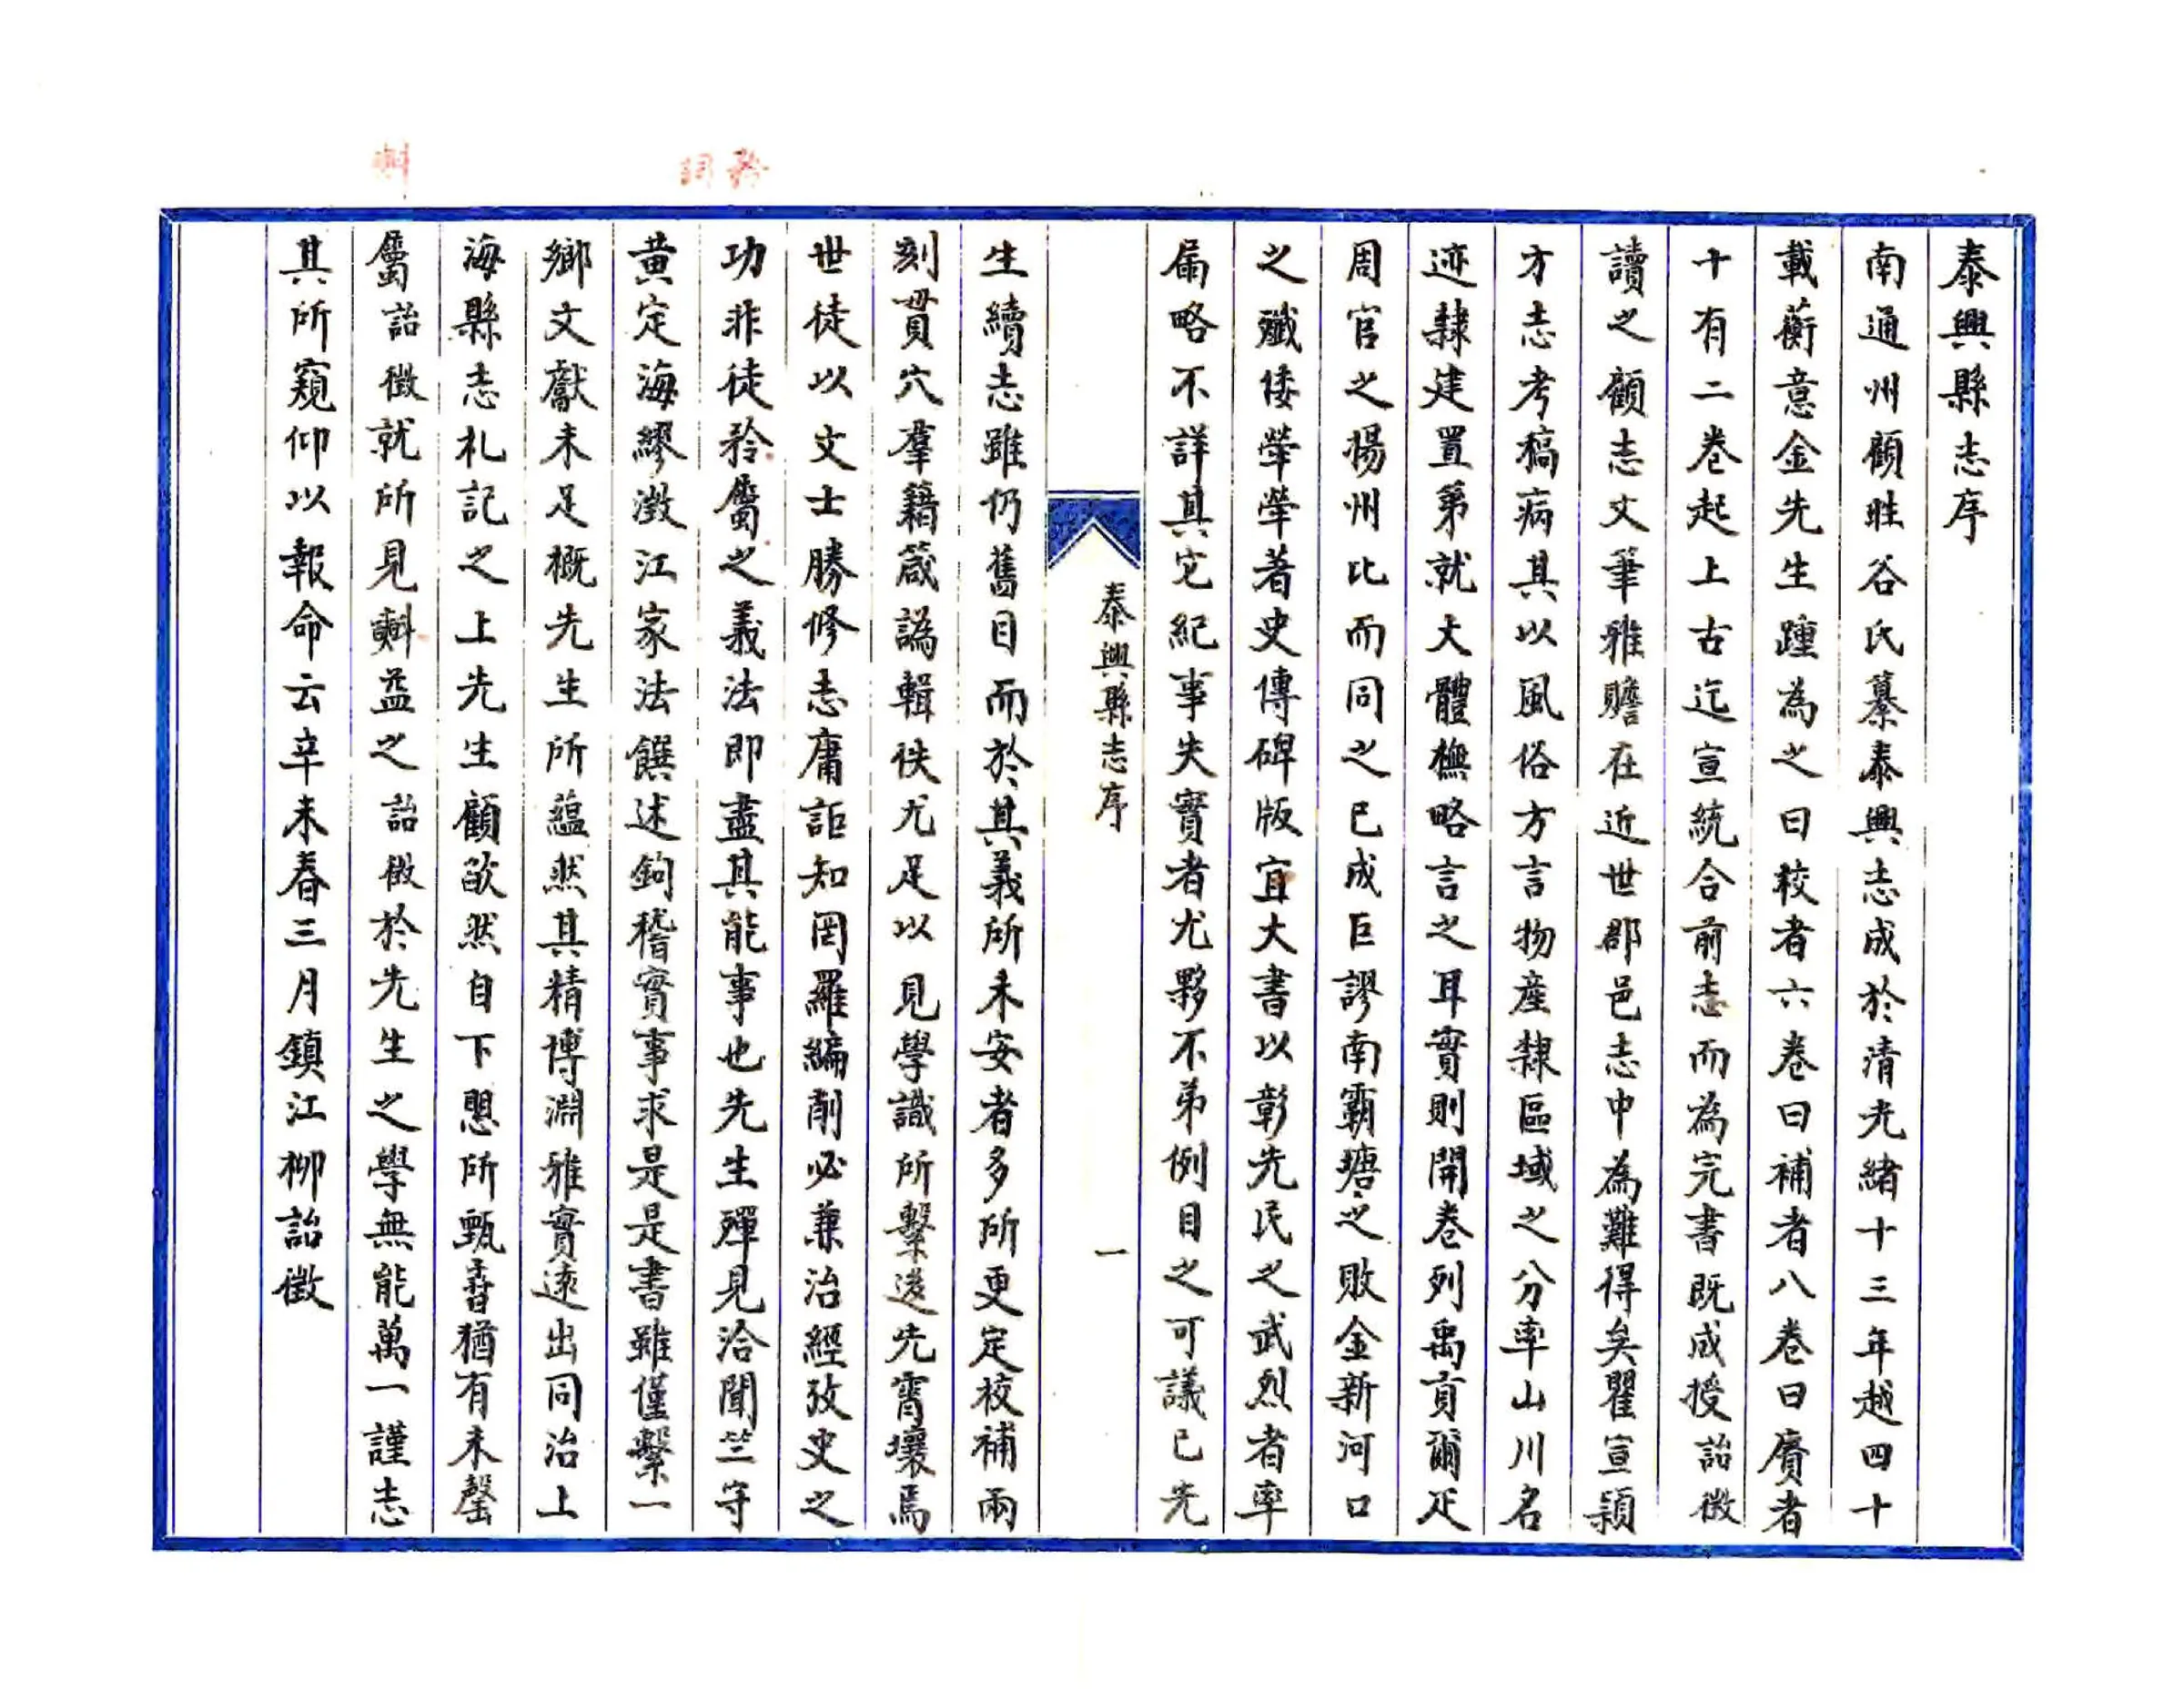 泰興縣志序
南通州顧晴谷氏纂泰興志成於清光緒十三年越四十
載蘅意金先生踵為之曰校者六卷曰補者八卷曰賡者
十有二卷起上古迄宣統合前志而為完書既成授詒徵
讀之顧志文筆雅贍在近世郡邑志中為難得矣瞿宣潁
方志考稿病其以風俗方言物產隸區域之分率山川名
迹隸建置第就大體橅略言之耳實則開卷列禹貢爾疋
周官之揚州比而同之已成巨謬南霸塘之敗金新河口
之殲倭犖犖著史傳碑版宜大書以彰先民之武烈者率
扁略不詳其它紀事失實者尤夥不弟例目之可議已先
泰興縣志序 一
生續志雖仍舊目而於其義所未安者多所更定校補兩
刻貫穴羣籍箴譌輯佚尤足以見學識所繫逡先霄壤焉
世徒以文士勝修志庸詎知罔羅編削必兼治經攷史之
功非徒矜屬之義法即盡其能事也先生殫見洽聞竺守
黃定海繆澂江家法饌述鉤稽實事求是是書雖僅繫一
鄉文獻未足概先生所蘊然其精博淵雅實遠出同治上
海縣志札記之上先生顧欿然自下愳所甄䜝猶有未罄
屬詒徵就所見㪺益之詒徵於先生之學無能萬一謹志
其所窺仰以報命云辛未春三月鎮江柳詒徵